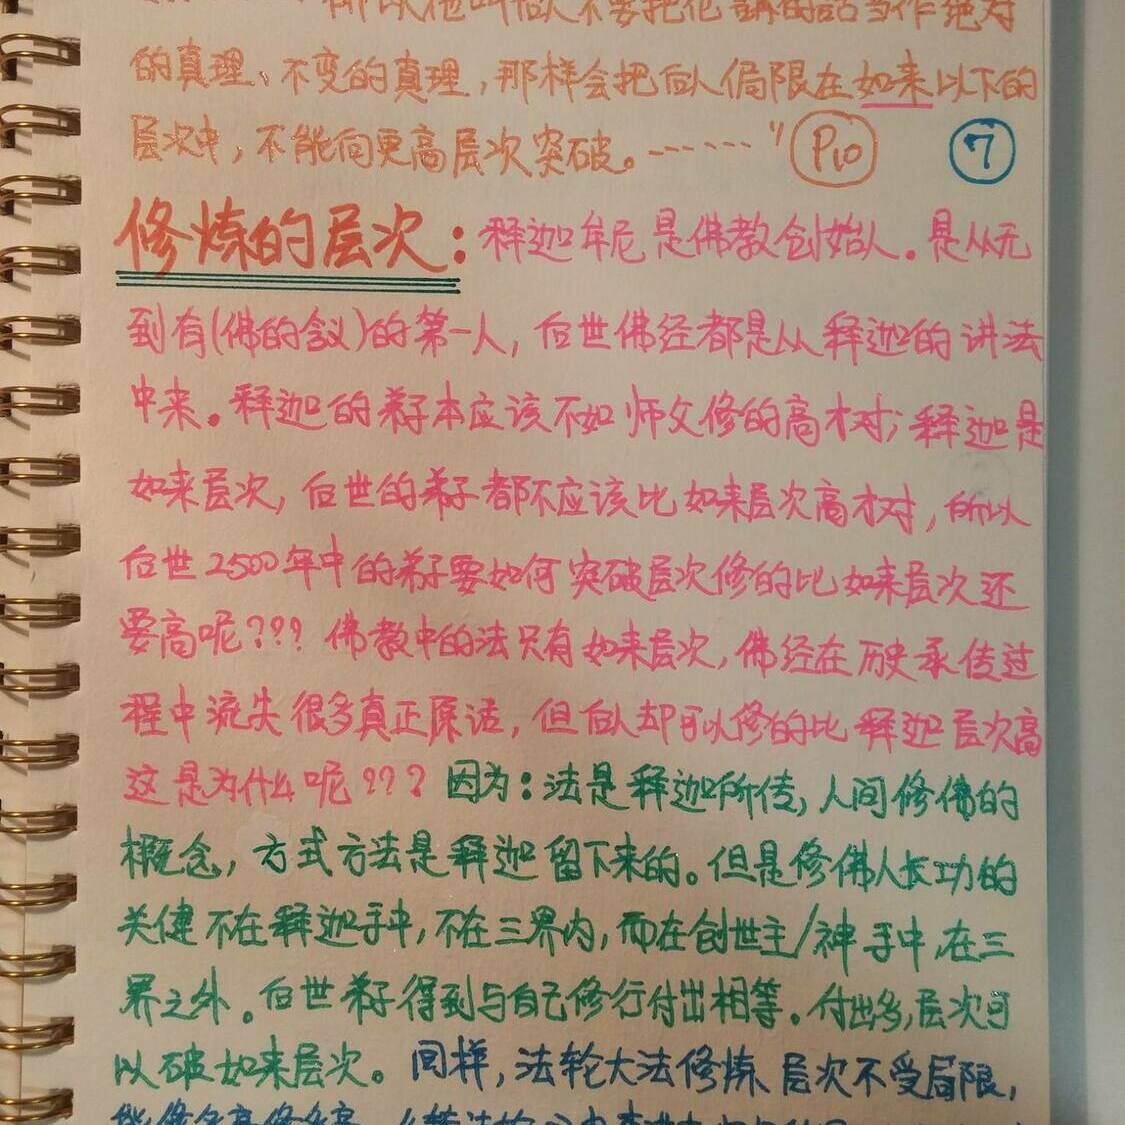 所以他叫后人不要把他讲的话当作绝对
的真理、不变的真理，那样会把后人局限在如来以下的
层次中，不能向更高层次突破。……" P10 ⑦
修炼的层次：释迦牟尼是佛教创始人。是从无
到有(佛的含义)的第一人，后世佛经都是从释迦的讲法
中来。释迦的弟子本应该不如师父修的高才对；释迦是
如来层次，后世的弟子都不应该比如来层次高才对，所以
后世2500年中的弟子要如何突破层次修的比如来层次还
要高呢？？？佛教中的法只有如来层次，佛经在历史承传过
程中流失很多真正原话，但后人却可以修的比释迦层次高
这是为什么呢？？？因为：法是释迦所传，人间修佛的
概念，方式方法是释迦留下来的。但是修佛人长功的
关健不在释迦手中，不在三界内，而在创世主/神手中，在三
界之外。后世弟子得到与自己修行付出相等。付出多，层次可
以破如来层次。同样，法轮大法修炼层次不受局限，
能修多高修多高。